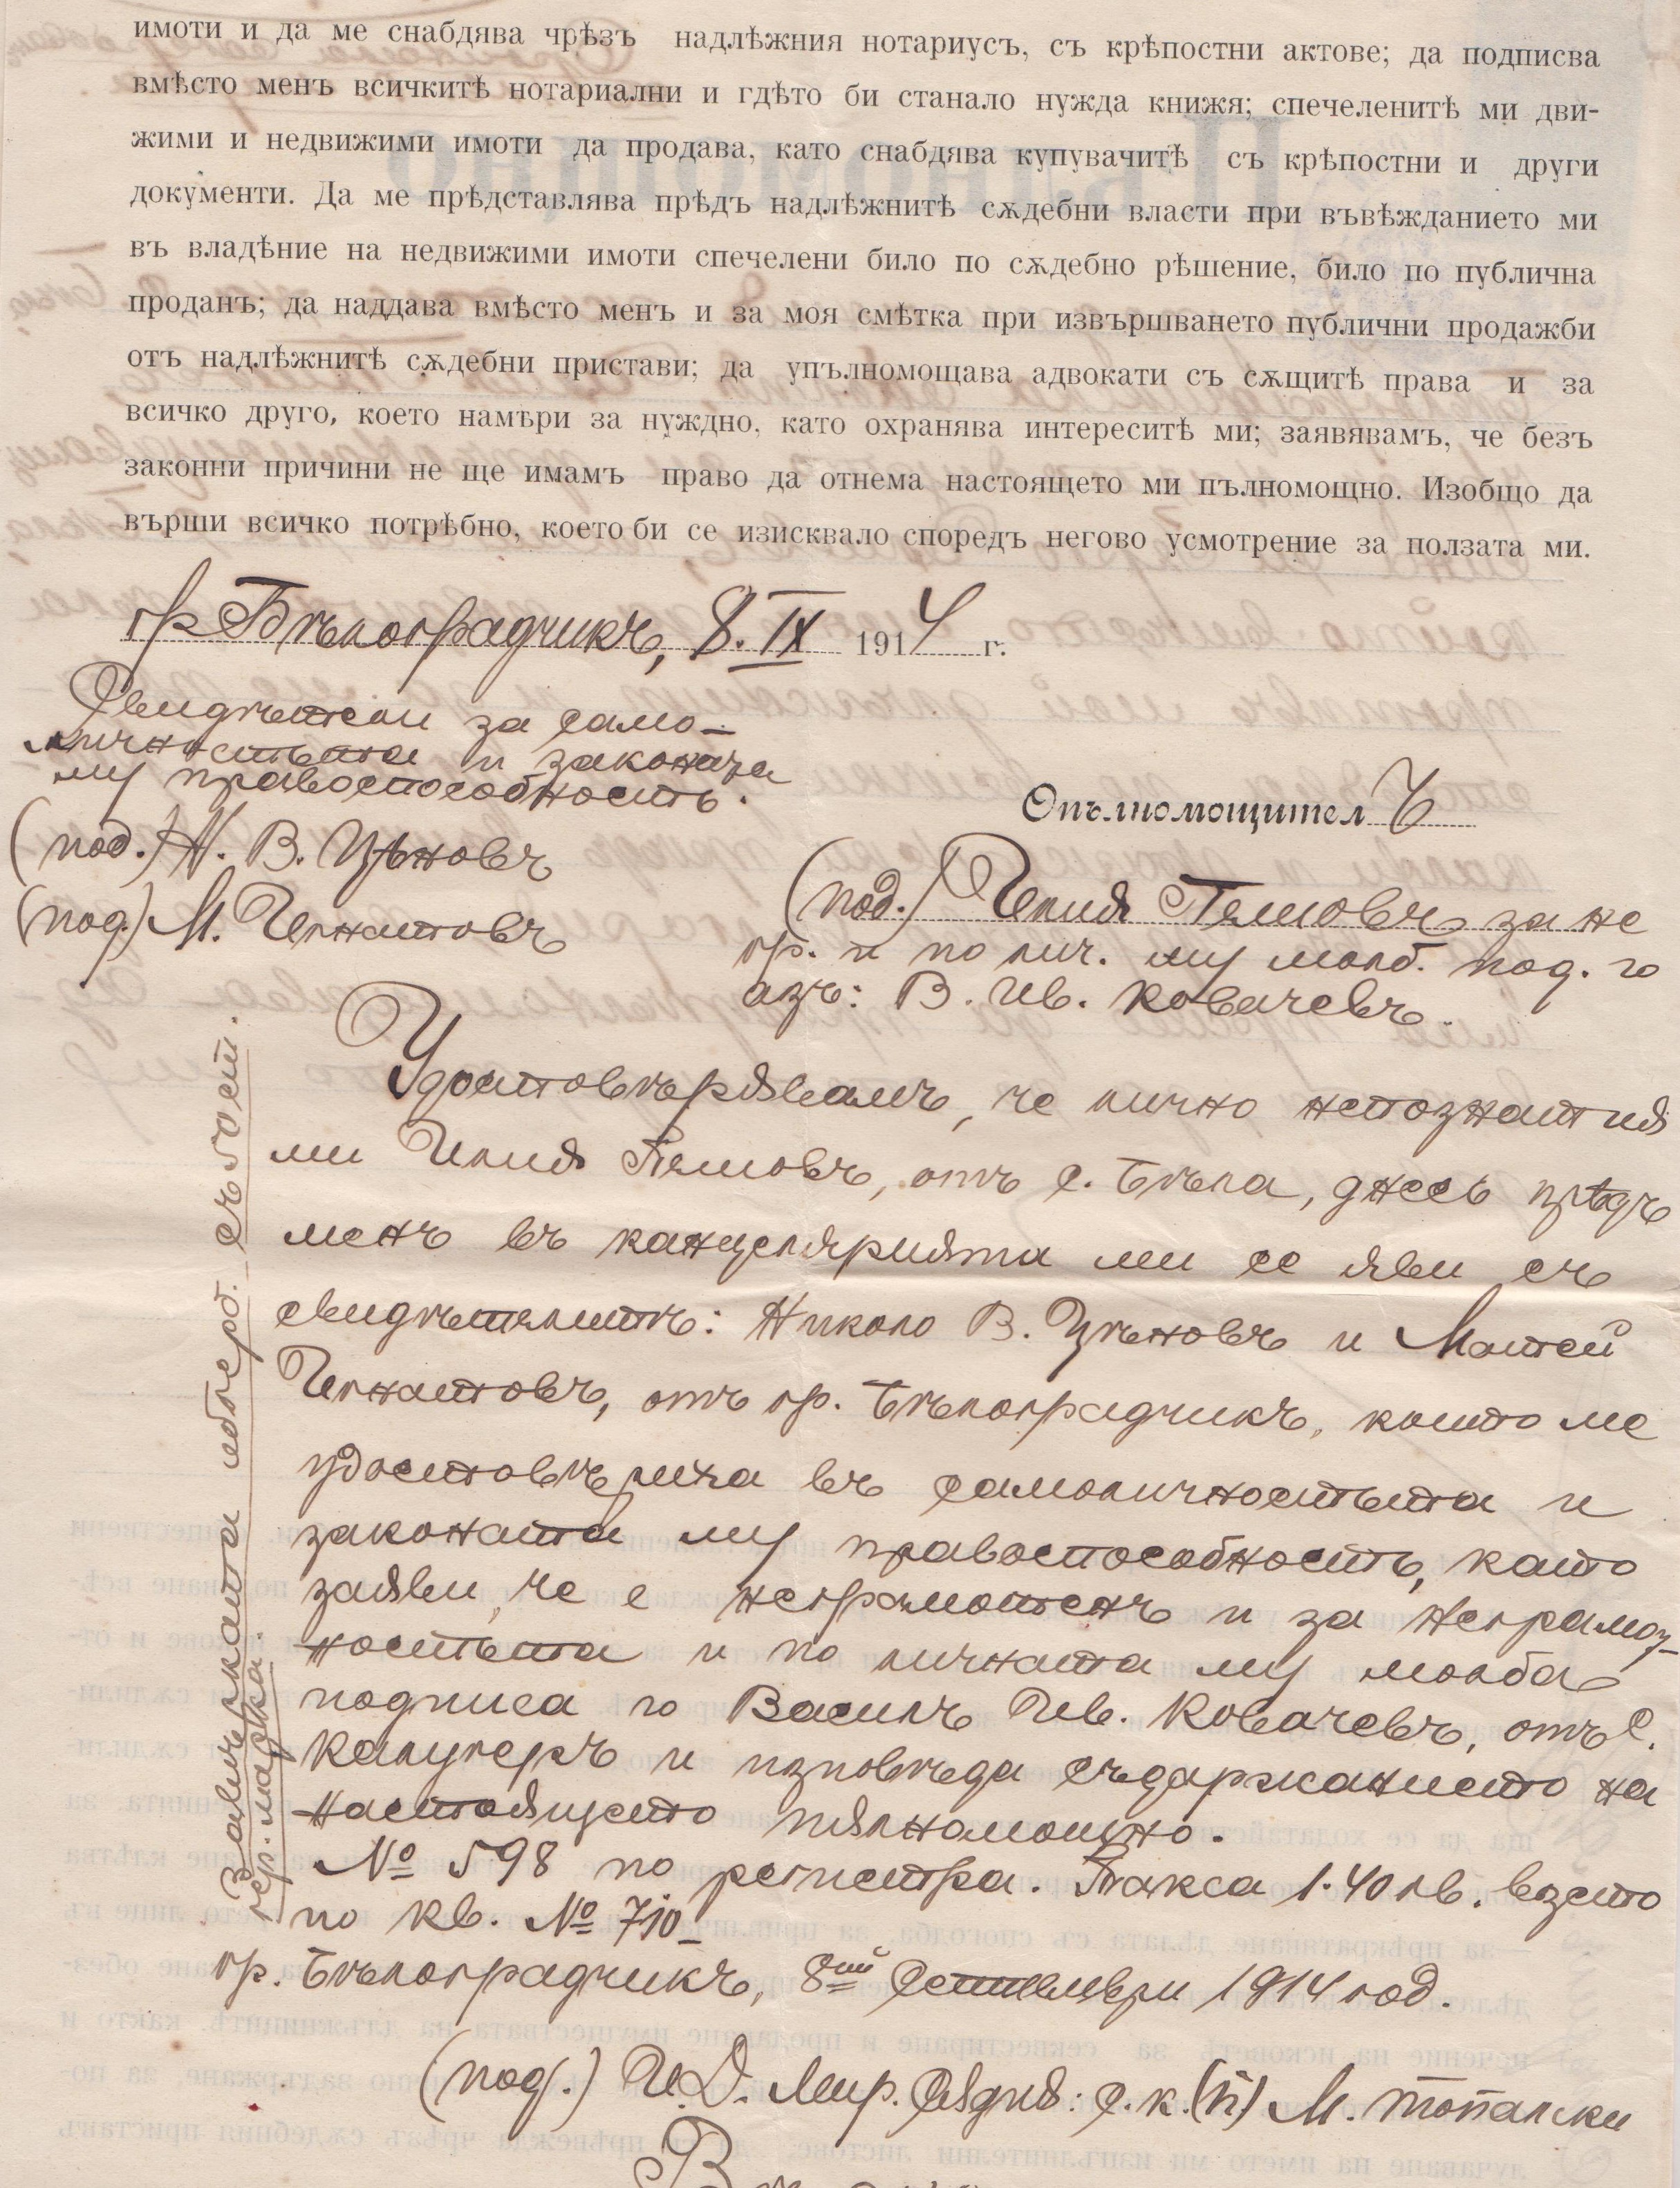 имоти и да ме снабдява чрѣзъ надлѣжния нотариусъ, съ крѣпостни актове; да подписва
вмѣсто менъ всичкитѣ нотариални и гдѣто би станало нужда книжя; спечеленитѣ ми дви-
жими и недвижими имоти да продава, като снабдява купувачитѣ съ крѣпостни и други
документи. Да ме прѣдставлява прѣдъ надлѣжнитѣ сѫдебни власти при въвѣжданието ми
въ владѣние на недвижими имоти спечелени било по сѫдебно рѣшение, било по публична
проданъ; да наддава вмѣсто менъ и за моя смѣтка при извършването публични продажби
отъ надлѣжнитѣ сѫдебни пристави; да упълномощава адвокати съ сѫщитѣ права и за
всичко друго, което намѣри за нуждно, като охранява интереситѣ ми; заявявамъ, че безъ
законни причини не ще имамъ право да отнема настоящето ми пълномощно. Изобщо да
върши всичко потрѣбно, което би се изисквало споредъ негово усмотрение за ползата ми.
гр Бѣлоградчикъ, 8. IX 1914 г.
Свидѣтели за само-
личностьта и законата
му правоспособность.
(под.) Н. В. Цѣновъ
(под.) М. Игнатовъ
Опълномощителъ
(под.) Илия Пешовъ за не
гр. и по лич. му молб. под. го
азъ: В. Ив. Ковачевъ.
Удостовѣрявамъ, че лично непознатия
ми Илия Пешовъ, отъ с. Бѣла, днесь прѣдъ
менъ въ канцелярията ми се яви съ
свидѣтелитѣ: Николо В. Цѣновъ и Матей
Игнатовъ, отъ гр. Бѣлоградчикъ, които ме
удостовѣриха въ самоличностьта и
законата му правоспособность, като
заяви, че е неграмотенъ и за неграмот-
ностьта и по личната му молба
подписа го Василъ Ив. Ковачевъ, отъ с.
Калугеръ и изповѣда съдаржанието на
настоящето пялномощно.
№ 598 по регистра. Такса 1.40 лв. взето
по кв. № 710
гр. Бѣлоградчикъ, 8ий Септември 1914 год.
(под.) И.Д. Мир. Сядия: с. к. (п) М. Топалски
Залѣпката облерб. съ 50 ст.
гер. марка.